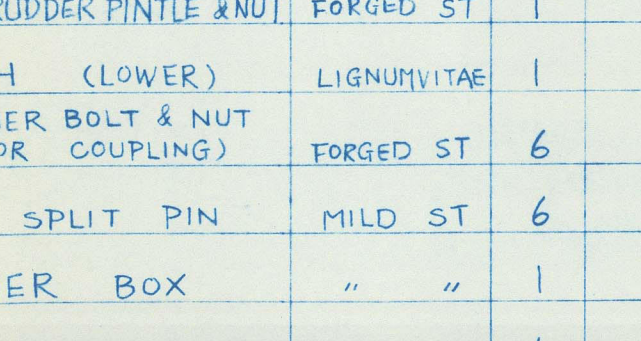 RUDDER PINTLE & NUT FORGED ST 1
H (LOWER) LIGNUMVITAE 1
ER BOLT & NUT
OR COUPLING) FORGED ST 6
SPLIT PIN MILD ST 6
ER BOX " " 1